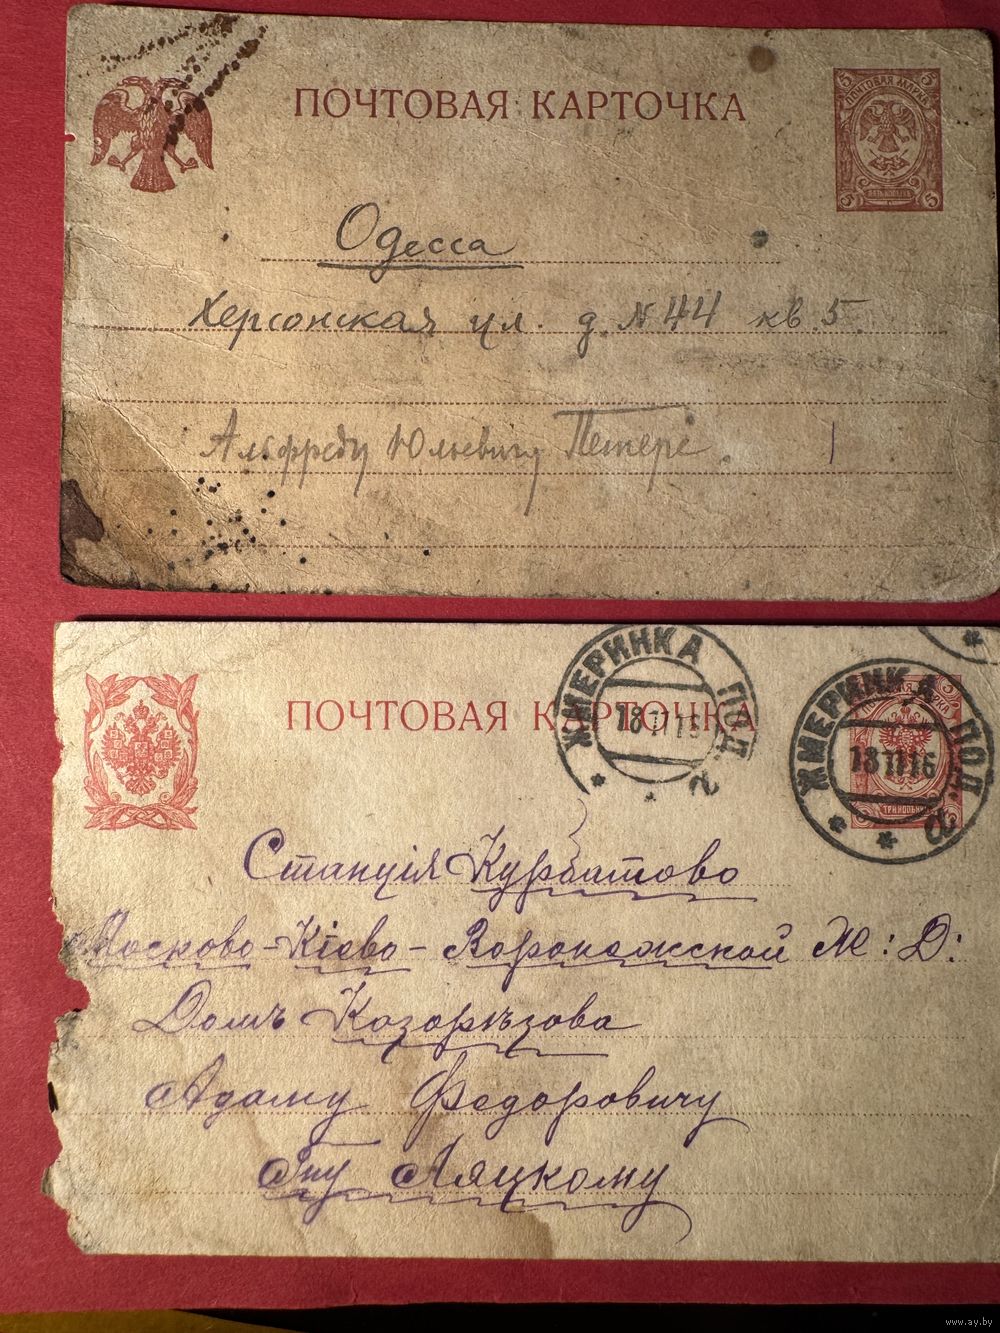 ПОЧТОВАЯ КАРТОЧКА
5 5
ПОЧТОВАЯ МАРКА
ПЯТЬ КОПѢЕКЪ
5 5
Одесса
Херсонская ул. д. № 44 кв. 5.
Альфреду Юльевичу Петерс.
ЖМЕРИНКА ПОД
18 II 16
а
ПОЧТОВАЯ КАРТОЧКА
ЖМЕРИНКА ПОД
18 II 16
а
Станція Курбатово
Московско-Кіево-Воронежской Ж: Д:
Домъ Козорѣзова
Адаму Федоровичу
Гну Ляцкому
www.ay.by